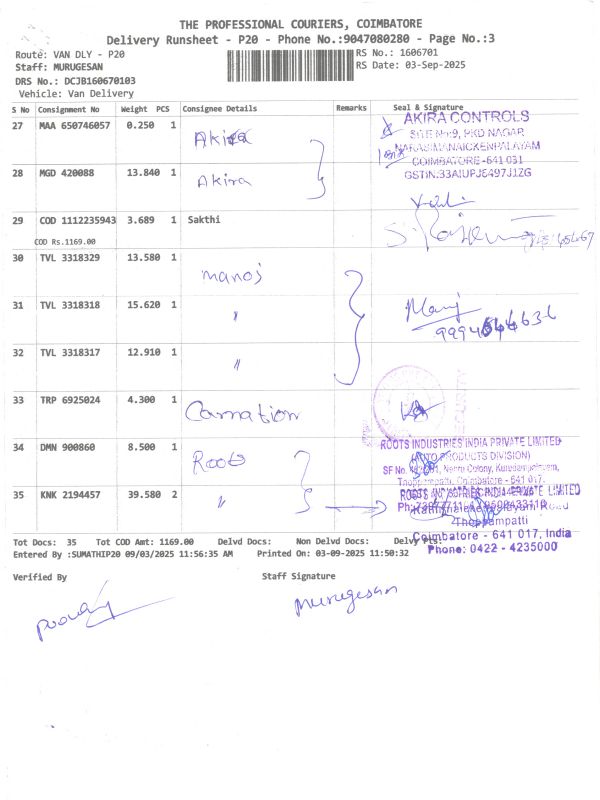 THE PROFESSIONAL COURIERS, COIMBATORE
Delivery Runsheet - P20 - Phone No.:9047080280 - Page No.:3
Route: VAN DLY - P20
RS No.: 1606701
Staff: MURUGESAN
RS Date: 03-Sep-2025
DRS No.: DCJB160670103
Vehicle: Van Delivery
S No Consignment No Weight PCS Consignee Details Remarks Seal & Signature
27 MAA 650746057 0.250 1 Akira
AKIRA CONTROLS
SITE No:9, PKD NAGAR
NARASIMANAICKENPALAYAM
COIMBATORE-641 031
GSTIN:33AIUPJ6497J1ZG
28 MGD 420088 13.840 1 Akira
29 COD 1112235943 3.689 1 Sakthi
COD Rs.1169.00
30 TVL 3318329 13.580 1 manoj
31 TVL 3318318 15.620 1 "
Manj
32 TVL 3318317 12.910 1 "
33 TRP 6925024 4.300 1 Carnation
34 DMN 900860 8.500 1 Roots
ROOTS INDUSTRIES INDIA PRIVATE LIMITED
(AUTO PRODUCTS DIVISION)
SF No. Nehru Colony,
Thoppampatti, Coimbatore - 641 017.
35 KNK 2194457 39.580 2 "
ROOTS INDUSTRIES INDIA PRIVATE LIMITED
Road
Thoppampatti
Coimbatore - 641 017, India
Phone: 0422 - 4235000
Tot Docs: 35 Tot COD Amt: 1169.00 Delvd Docs: Non Delvd Docs: Delvy Pts:
Entered By :SUMATHIP20 09/03/2025 11:56:35 AM Printed On: 03-09-2025 11:50:32
Verified By Staff Signature
Murugesan